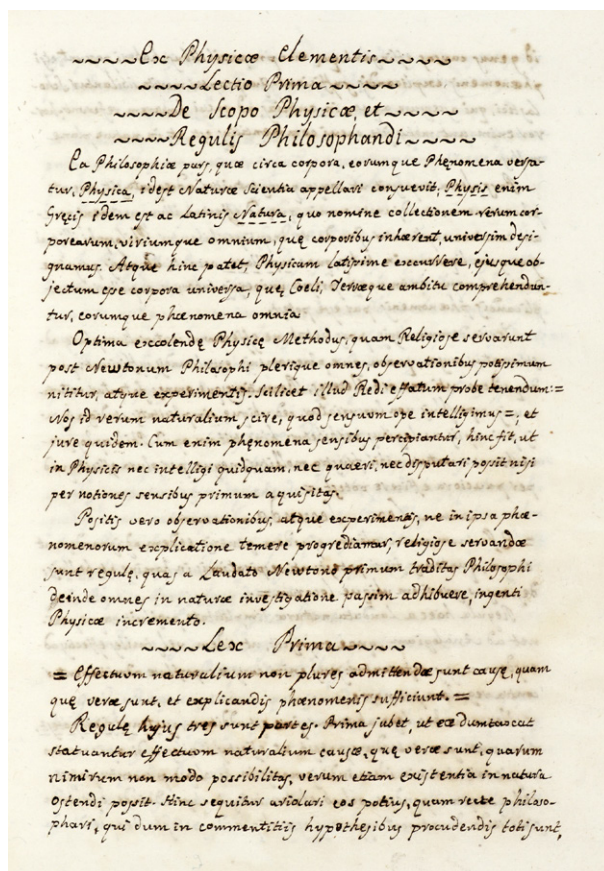 ~~~~Ex Physicæ Elementis~~~~
~~~~Lectio Prima~~~~
~~~~De Scopo Physicæ, et~~~~
~~~~Regulis Philosophandi~~~~
Ea Philosophiæ pars, quæ circa corpora, eorumque Phęnomena versa-
tur, Physica, idest Naturæ Scientia appellari consuevit; Physis enim
Gręcis idem est ac Latinis Natura, quo nomine collectionem rerum cor-
porearum, viriumque omnium, quę corporibus inhærent, universim desi-
gnamus. Atque hinc patet, Physicam latissime excurrere, ejusque ob-
jectum esse corpora universa, quę Coeli, Terræque ambitu comprehendun-
tur, eorumque phænomena omnia
Optima excolendę Physicę Methodus, quam Religiose servarunt
post Newtonum Philosophi plerique omnes, observationibus potissimum
nititur, atque experimentis. Scilicet illud Redi effatum probe tenendum:=
Nos id rerum naturalium scire, quod sensuum ope intelligimus=, et
jure quidem. Cum enim phęnomena sensibus percipiantur, hinc fit, ut
in Physicis nec intelligi quidquam, nec quaeri, nec disputari possit nisi
per notiones sensibus primum aquisitas.
Positis vero observationibus, atque experimentis, ne in ipsa phæ-
nomenorum explicatione temere progrediamur, religiose servandæ
sunt regulę, quas a Laudato Newtono primum traditas Philosophi
deinde omnes in naturæ investigatione passim adhibuere, ingenti
Physicæ incremento.
~~~~Lex Prima~~~~
= Effectuum naturalium non plures admittendæ sunt causę, quam
quę veræ sunt, et explicandis phænomenis sufficiunt. =
Regulę hujus tres sunt partes. Prima jubet, ut eæ dumtaxat
statuantur effectuum naturalium causæ, quę veræ sunt, quarum
nimirum non modo possibilitas, verum etiam existentia in natura
ostendi possit. Hinc sequitur ariolari eos potius, quam recte philoso-
phari, qui dum in commentitiis hypothesibus procudendis toti sunt,